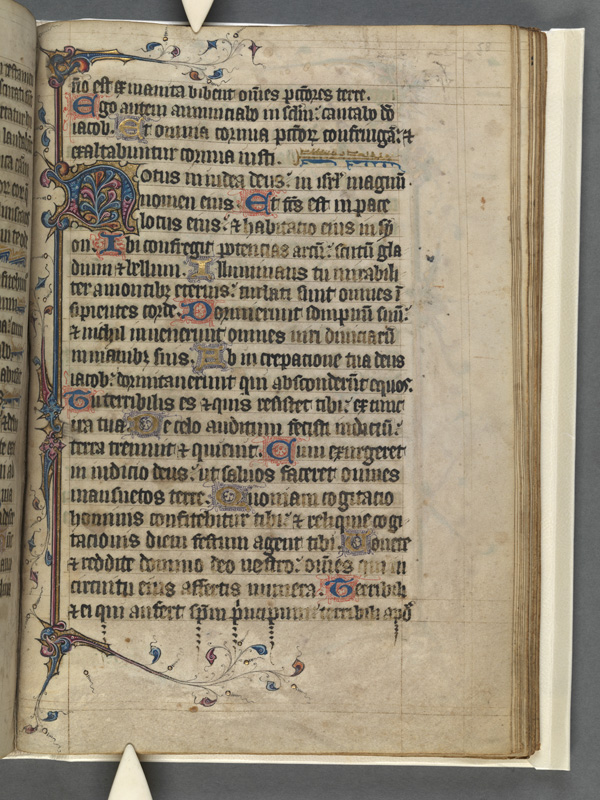 no est exinanita bibent omēs pctōres terre.
Ego autem annunciabo in sclm̄: cantabo dō
iacob. Et omnia cornua pctōr confringā: ⁊
exaltabuntur cornua iusti.
Notus in iudea deus: in isrl magnū
nomen eius. Et fcs est in pace
locus eius: ⁊ habitacio eius in sy
on. Ibi confregit potencias arcū: scutū gla
dium ⁊ bellum. Illuminans tu mirabili
ter a montibꝫ eternis: turbati sunt omnes ī
sipientes corde. Dormierunt sompnum suū:
⁊ nichil inuenerunt omnes uiri diuiciarū
in manibꝫ suis. Ab increpacione tua deus
iacob: dormitauerunt qui ascenderūt equos.
Tu terribilis es ⁊ quis resistet tibi: ex tunc
ira tua. De celo auditum fecisti iudiciū:
terra tremuit ⁊ quieuit. Cum exurgeret
in iudicio deus: ut saluos faceret omnes
mansuetos terre. Quoniam cogitacio
hominis confitebitur tibi: ⁊ reliquie cogi
tacionis diem festum agent tibi. Uouete
⁊ reddite domino deo uestro: omēs qui in
circuitu eius affertis munera. Terribili
⁊ ei qui aufert spm̄ principum: terribili apd̄